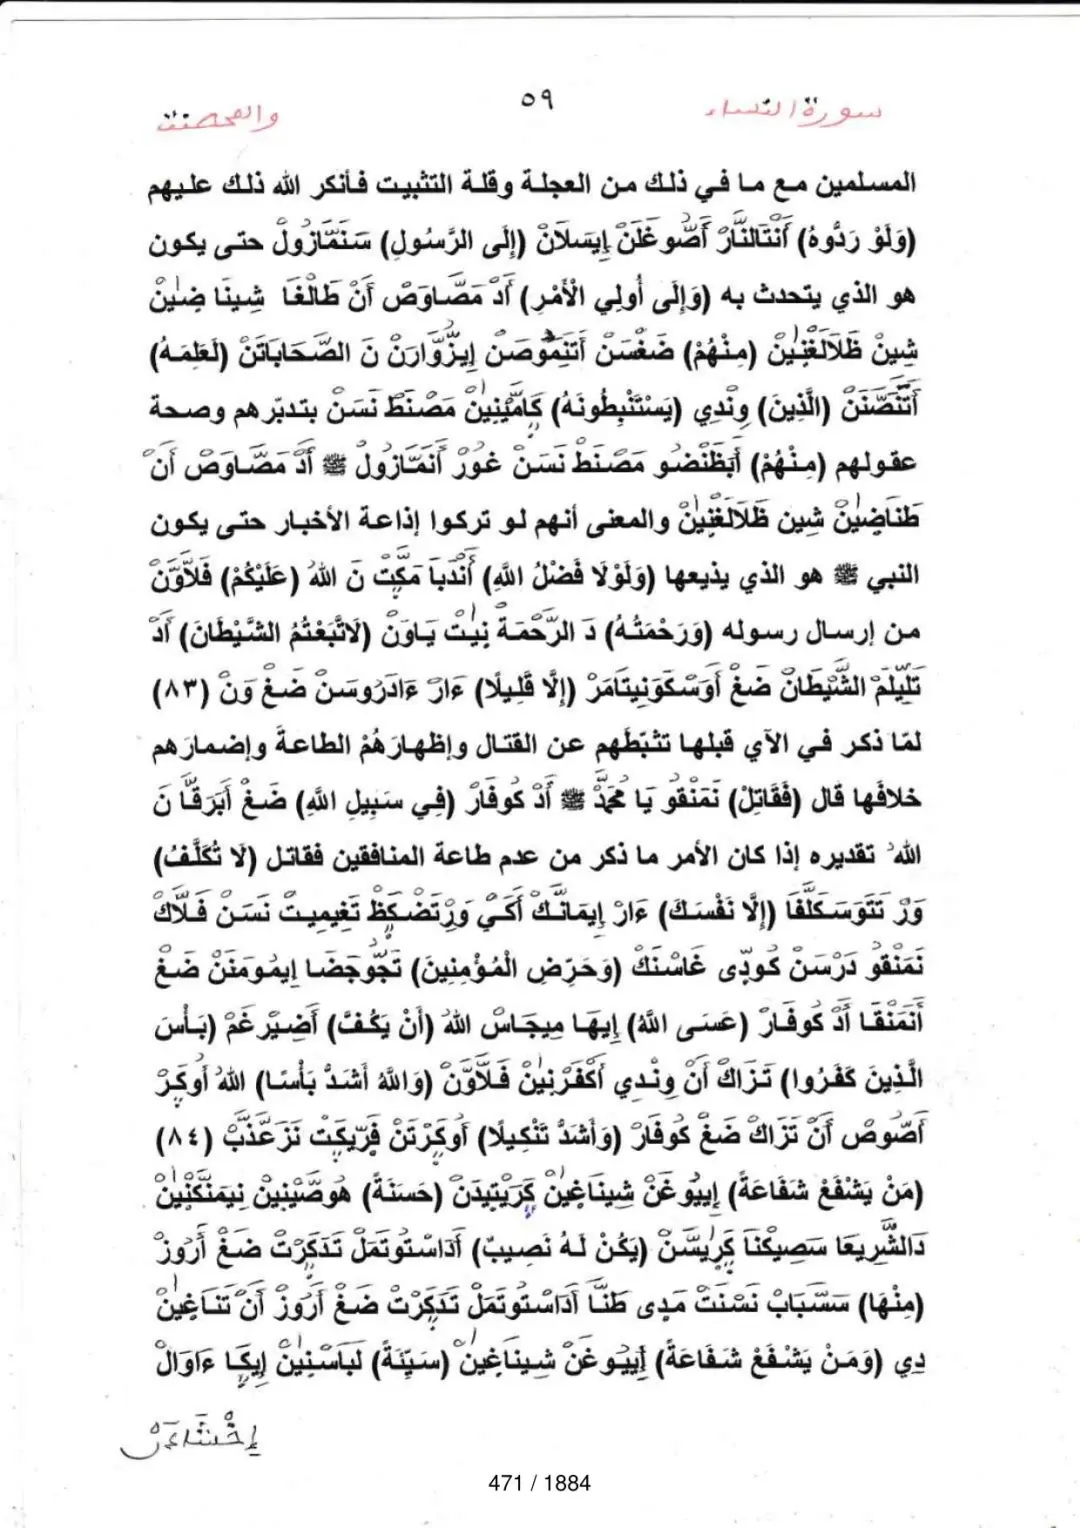 سورة النساء ٥٩ والمحصنت
المسلمين مع ما في ذلك من العجلة وقلة التثبيت فأنكر الله ذلك عليهم
(وَلَوْ رَدُّوهُ) أَنْتَالنَّارْ أَصُّوغَلَنْ إِيسَلَانْ (إِلَى الرَّسُولِ) سَنَمَّازُولْ حتى يكون
هو الذي يتحدث به (وَإِلَى أُولِي الْأَمْرِ) أَدْ مَصَّاوَصْ أَنْ طَالْغَا شِينَا ضِيٰنْ
شِينْ ظَلَالَغْنِيٰنْ (مِنْهُمْ) ضَغْسَنْ أَتَنِمُوصَنْ إِيزْوَارَنْ نَ الصَّحَابَاتَنْ (لَعَلِمَهُ)
أَتَنَصَّنَنْ (الَّذِينَ) وِنْدِي (يَسْتَنْبِطُونَهُ) كَامَيْنِينْ مَصْنَطْ نَسَنْ بتدبّرهم وصحة
عقولهم (مِنْهُمْ) أَبَظَنْضُو مَصْنَطْ نَسَنْ غُورْ أَنَمَّازُولْ ﷺ أَدْ مَصَّاوَصْ أَنْ
طَنَاضِيٰنْ شِين ظَلَالَغْنِيٰنْ والمعنى أنهم لو تركوا إذاعة الأخبار حتى يكون
النبي ﷺ هو الذي يذيعها (وَلَوْلَا فَضْلُ اللَّهِ) أَنْدَبَا مَكَّتْ نَ اللهُ (عَلَيْكُمْ) فَلَّاوَنْ
من إرسال رسوله (وَرَحْمَتُهُ) دَ الرَّحْمَةْ نِيٰتْ يَاوَنْ (لَاتَّبَعْتُمُ الشَّيْطَانَ) أَدْ
تَلِّيلَمْ الشَّيْطَانْ ضَغْ أَوَسْكَوْنِيتَامَرْ (إِلَّا قَلِيلًا) ءَارْ ءَادَرُوسَنْ ضَغْ وَنْ (٨٣)
لمّا ذكر في الآي قبلها تثبّطهم عن القتال وإظهارَهُمْ الطاعةَ وإضمارَهم
خلافَها قال (فَقَاتِلْ) نَمَنْقُو يَا مُحَمَّدْ ﷺ أَدْ كُوفَارْ (فِي سَبِيلِ اللَّهِ) ضَغْ أَبَرَقَّا نَ
اللهْ تقديره إذا كان الأمر ما ذكر من عدم طاعة المنافقين فقاتل (لَا تُكَلَّفُ)
وَرْ تَتَوَسَكَلَّفَا (إِلَّا نَفْسَكَ) ءَارْ إِيمَانَكْ أَكَيْ وَرْتَضْكِظْ تَغِيمِيتْ نَسَنْ فَلَاكْ
نَمَنْقُو دَرْسَنْ كُودِى غَاسْنَكْ (وَحَرِّضِ الْمُؤْمِنِينَ) تَجُّوجَضَا إِيمُومَنَنْ ضَغْ
أَنَمَنْقَا أَدْ كُوفَارْ (عَسَى اللَّهُ) إِيهَا مِيجَاسْ اللهُ (أَنْ يَكُفَّ) أَضِيّرغَمْ (بَأْسَ
الَّذِينَ كَفَرُوا) تَزَاكْ أَنْ وِنْدِي أَكْفَرْنِيٰنْ فَلَّاوَنْ (وَاللَّهُ أَشَدُّ بَأْسًا) اللهُ أُوكَرْ
أَصُّوصْ أَنْ تَزَاكْ ضَغْ كُوفَارْ (وَأَشَدُّ تَنْكِيلًا) أُوكَرْتَنْ فِرِّيكِتْ نَزْعَذَّبْ (٨٤)
(مَنْ يَشْفَعْ شَفَاعَةً) إِييُوغَنْ شِينَاغِيٰنْ كَرَيْتِيدَنْ (حَسَنَةً) هُوصَّيْنِينْ نِيمَنَكْنِيٰنْ
دَالشَّرِيعَا سَصِيكْنَا كَرٰيْسَنْ (يَكُنْ لَهُ نَصِيبٌ) أَدَاسْتُوتَمَلْ تَدَكَرْتْ ضَغْ أَرُوزْ
(مِنْهَا) سَسَّبَابْ نَسْنَتْ مَدِى طَنَّا أَدَاسْتُوتَمَلْ تَدَكِرْتْ ضَغْ أَرُوزْ أَنْ تَنَاغِيٰنْ
دِي (وَمَنْ يَشْفَعْ شَفَاعَةً) إِييُوغَنْ شِينَاغِيٰنْ (سَيِّئَةً) لَبَاسْنِيٰنْ إِيكَا ءَاوَالْ
471 / 1884